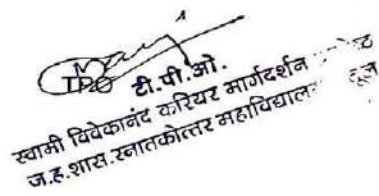 TPO
टी.पी.ओ.
स्वामी विवेकानंद करियर मार्गदर्शन
ज.ह.शास.स्नातकोत्तर महाविद्यालय